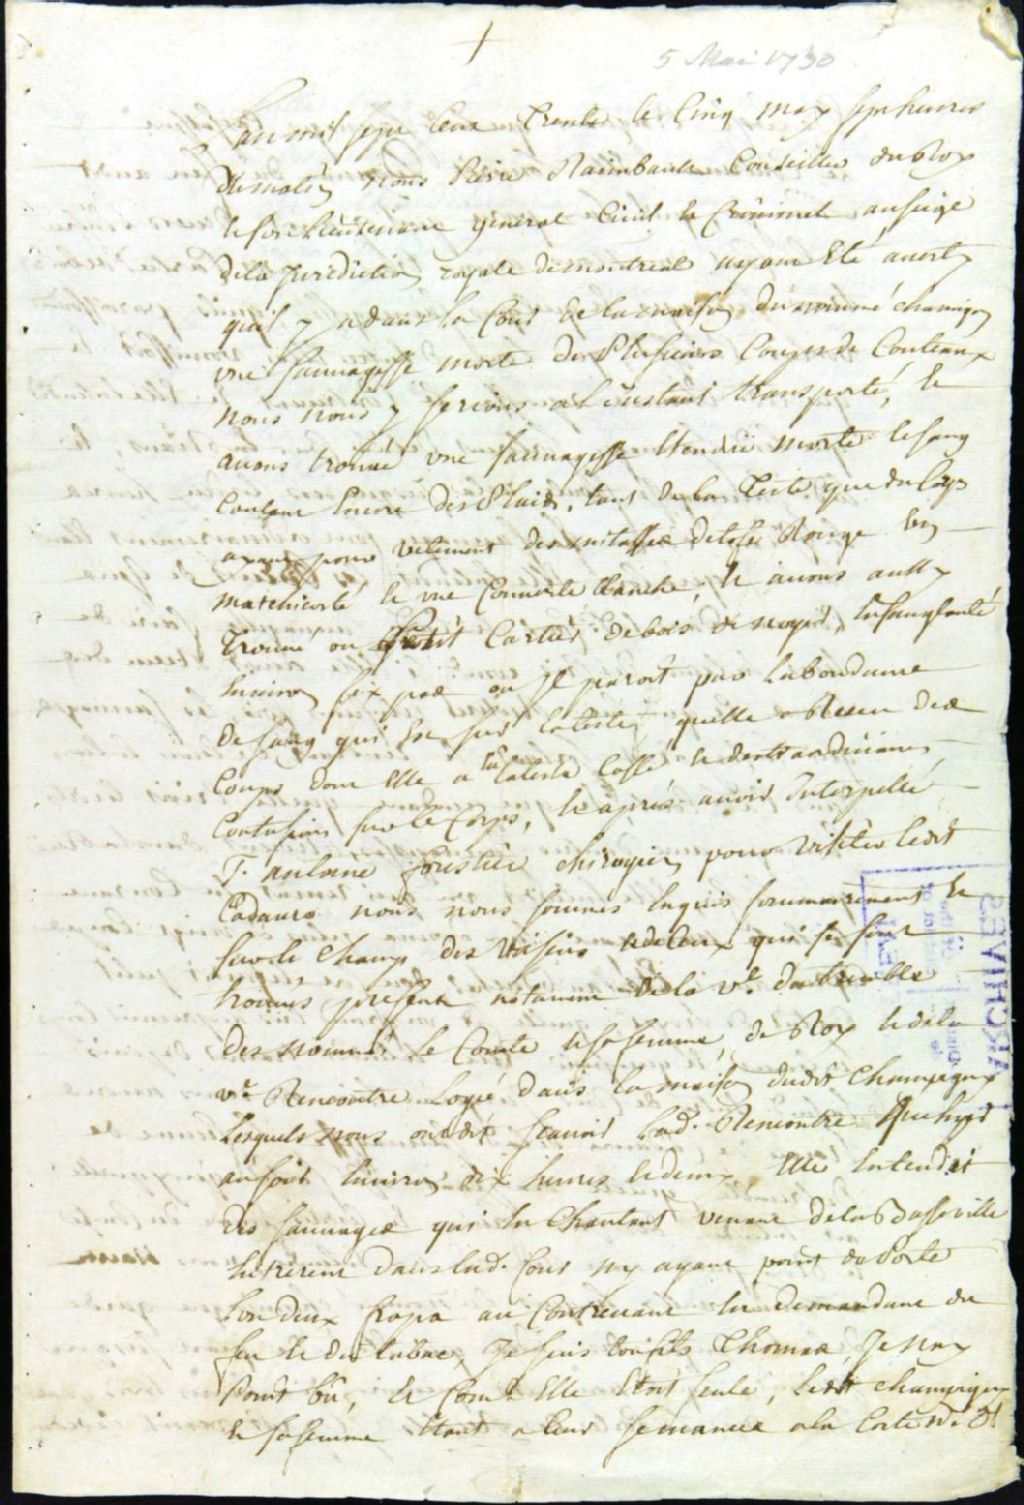 5 Mai 1730
Lan mil sept cens Trente le Cinq may sept heures
du matin nous Pierre Raimbault Conseiller du Roy
et son Lieutenant general Civil et Criminel au siege
de la Jurediction royale de montreal ayant Eté averty
quil y a dans la Cour de la maison du nommé champigny
une sauvagesse morte de Plusieurs Coups de Couteaux
nous nous y serions a L'instant transporté, et
avons trouvé une sauvagesse Etendüe morte le sang
Coulant Encore des Playes, tant de la Teste que du Corps
ayant pour vetement des mitasses detoffe Rouge un
machicoté et une Couverte blanche, et avons aussy
trouvé un Petit Cartier de bois de noyer Ensanglanté
Environ six pas ou Il paroit par Labondance
de sang qui Est sur la teste quelle a Receu des
Coups dont Elle a Eu la teste Cassé et
Contusions sur le Corps, et aprés avoir Interpellé
T. antoine forestier chirugien pour visiter ledit
Cadavre nous nous sommes Enquis sommairement et
sur le Champ des voisins et de Ceux qui se sont
trouvés present notament de la ve. du tremble
des nommés le Comte et sa femme, de Roy et de la
ve. Rencontre Logé dans la maison dudit Champigny
Lesquels nous ont dit scavoir lad. Rencontre quhyer
au soir Environ dix heures et demy Elle Entendit
des sauvages qui En Chantant venant de la Basseville
Entrerent dans lad. Cour ny ayant point de Porte
Lun deux frapa au Contrevent En demandant du
feu et du tabac, Je suis ton fils Thomas, Je nay
Point bû, et Comme Elle Etoit seule, ledit champigny
et sa femme Etant a leur semance a la Coste